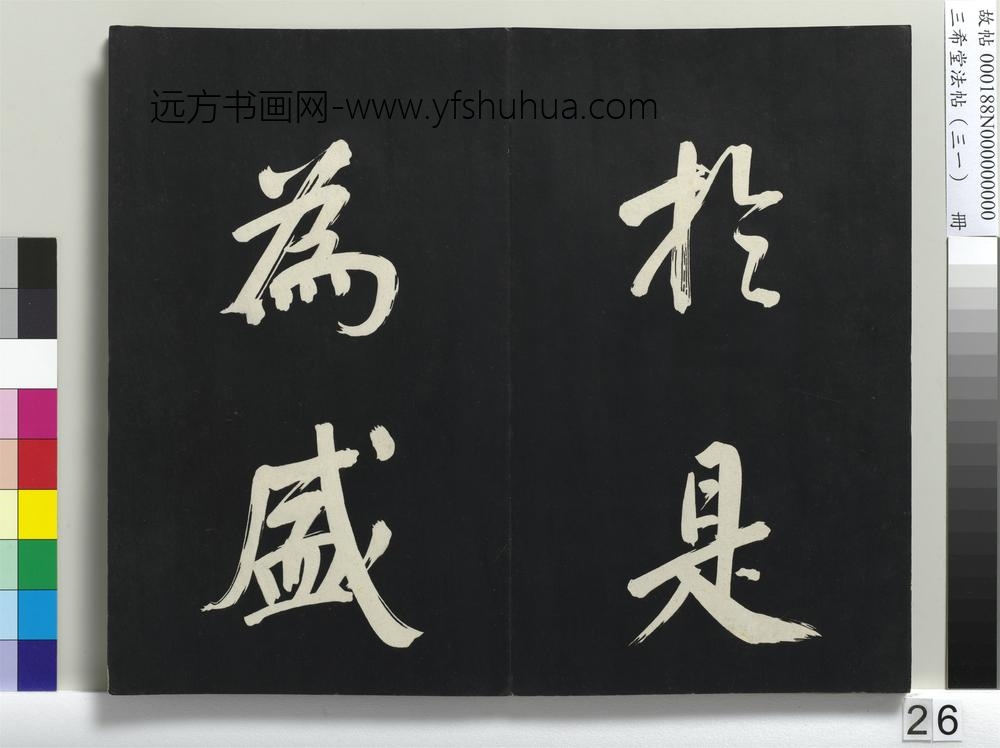 於是
為盛
远方书画网-www.yfshuhua.com
故帖000188N000000000
三希堂法帖（三一） 冊
26